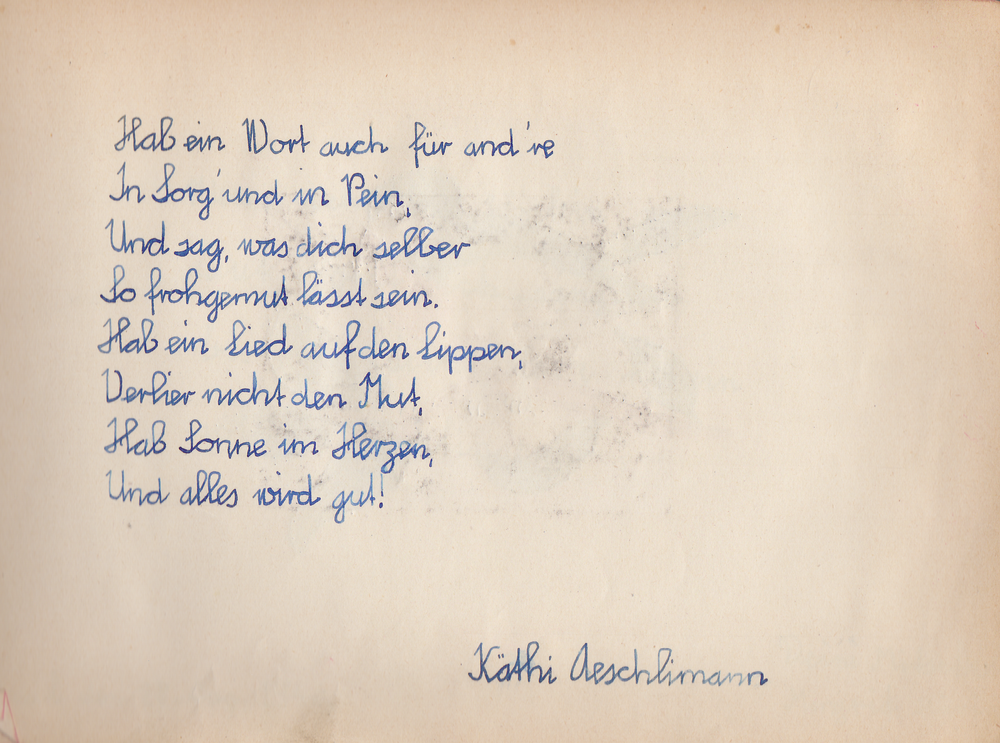 Hab ein Wort auch für and're
In Sorg' und in Pein,
Und sag, was dich selber
So frohgemut lässt sein.
Hab ein Lied auf den Lippen,
Verlier nicht den Mut,
Hab Sonne im Herzen,
Und alles wird gut!
Käthi Aeschlimann